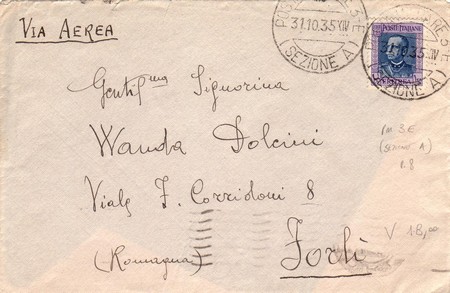 VIA AEREA
31.10.35 XIV
(SEZIONE A)
POSTE ITALIANE
31.10.35 XIV
SEZIONE A)
Gentil.ma Signorina
Wanda Dolcini
Viale F. Corridoni 8
(Romagna)
Forlì
PM 3E
(SEZIONE A)
P. 8
V 18,00